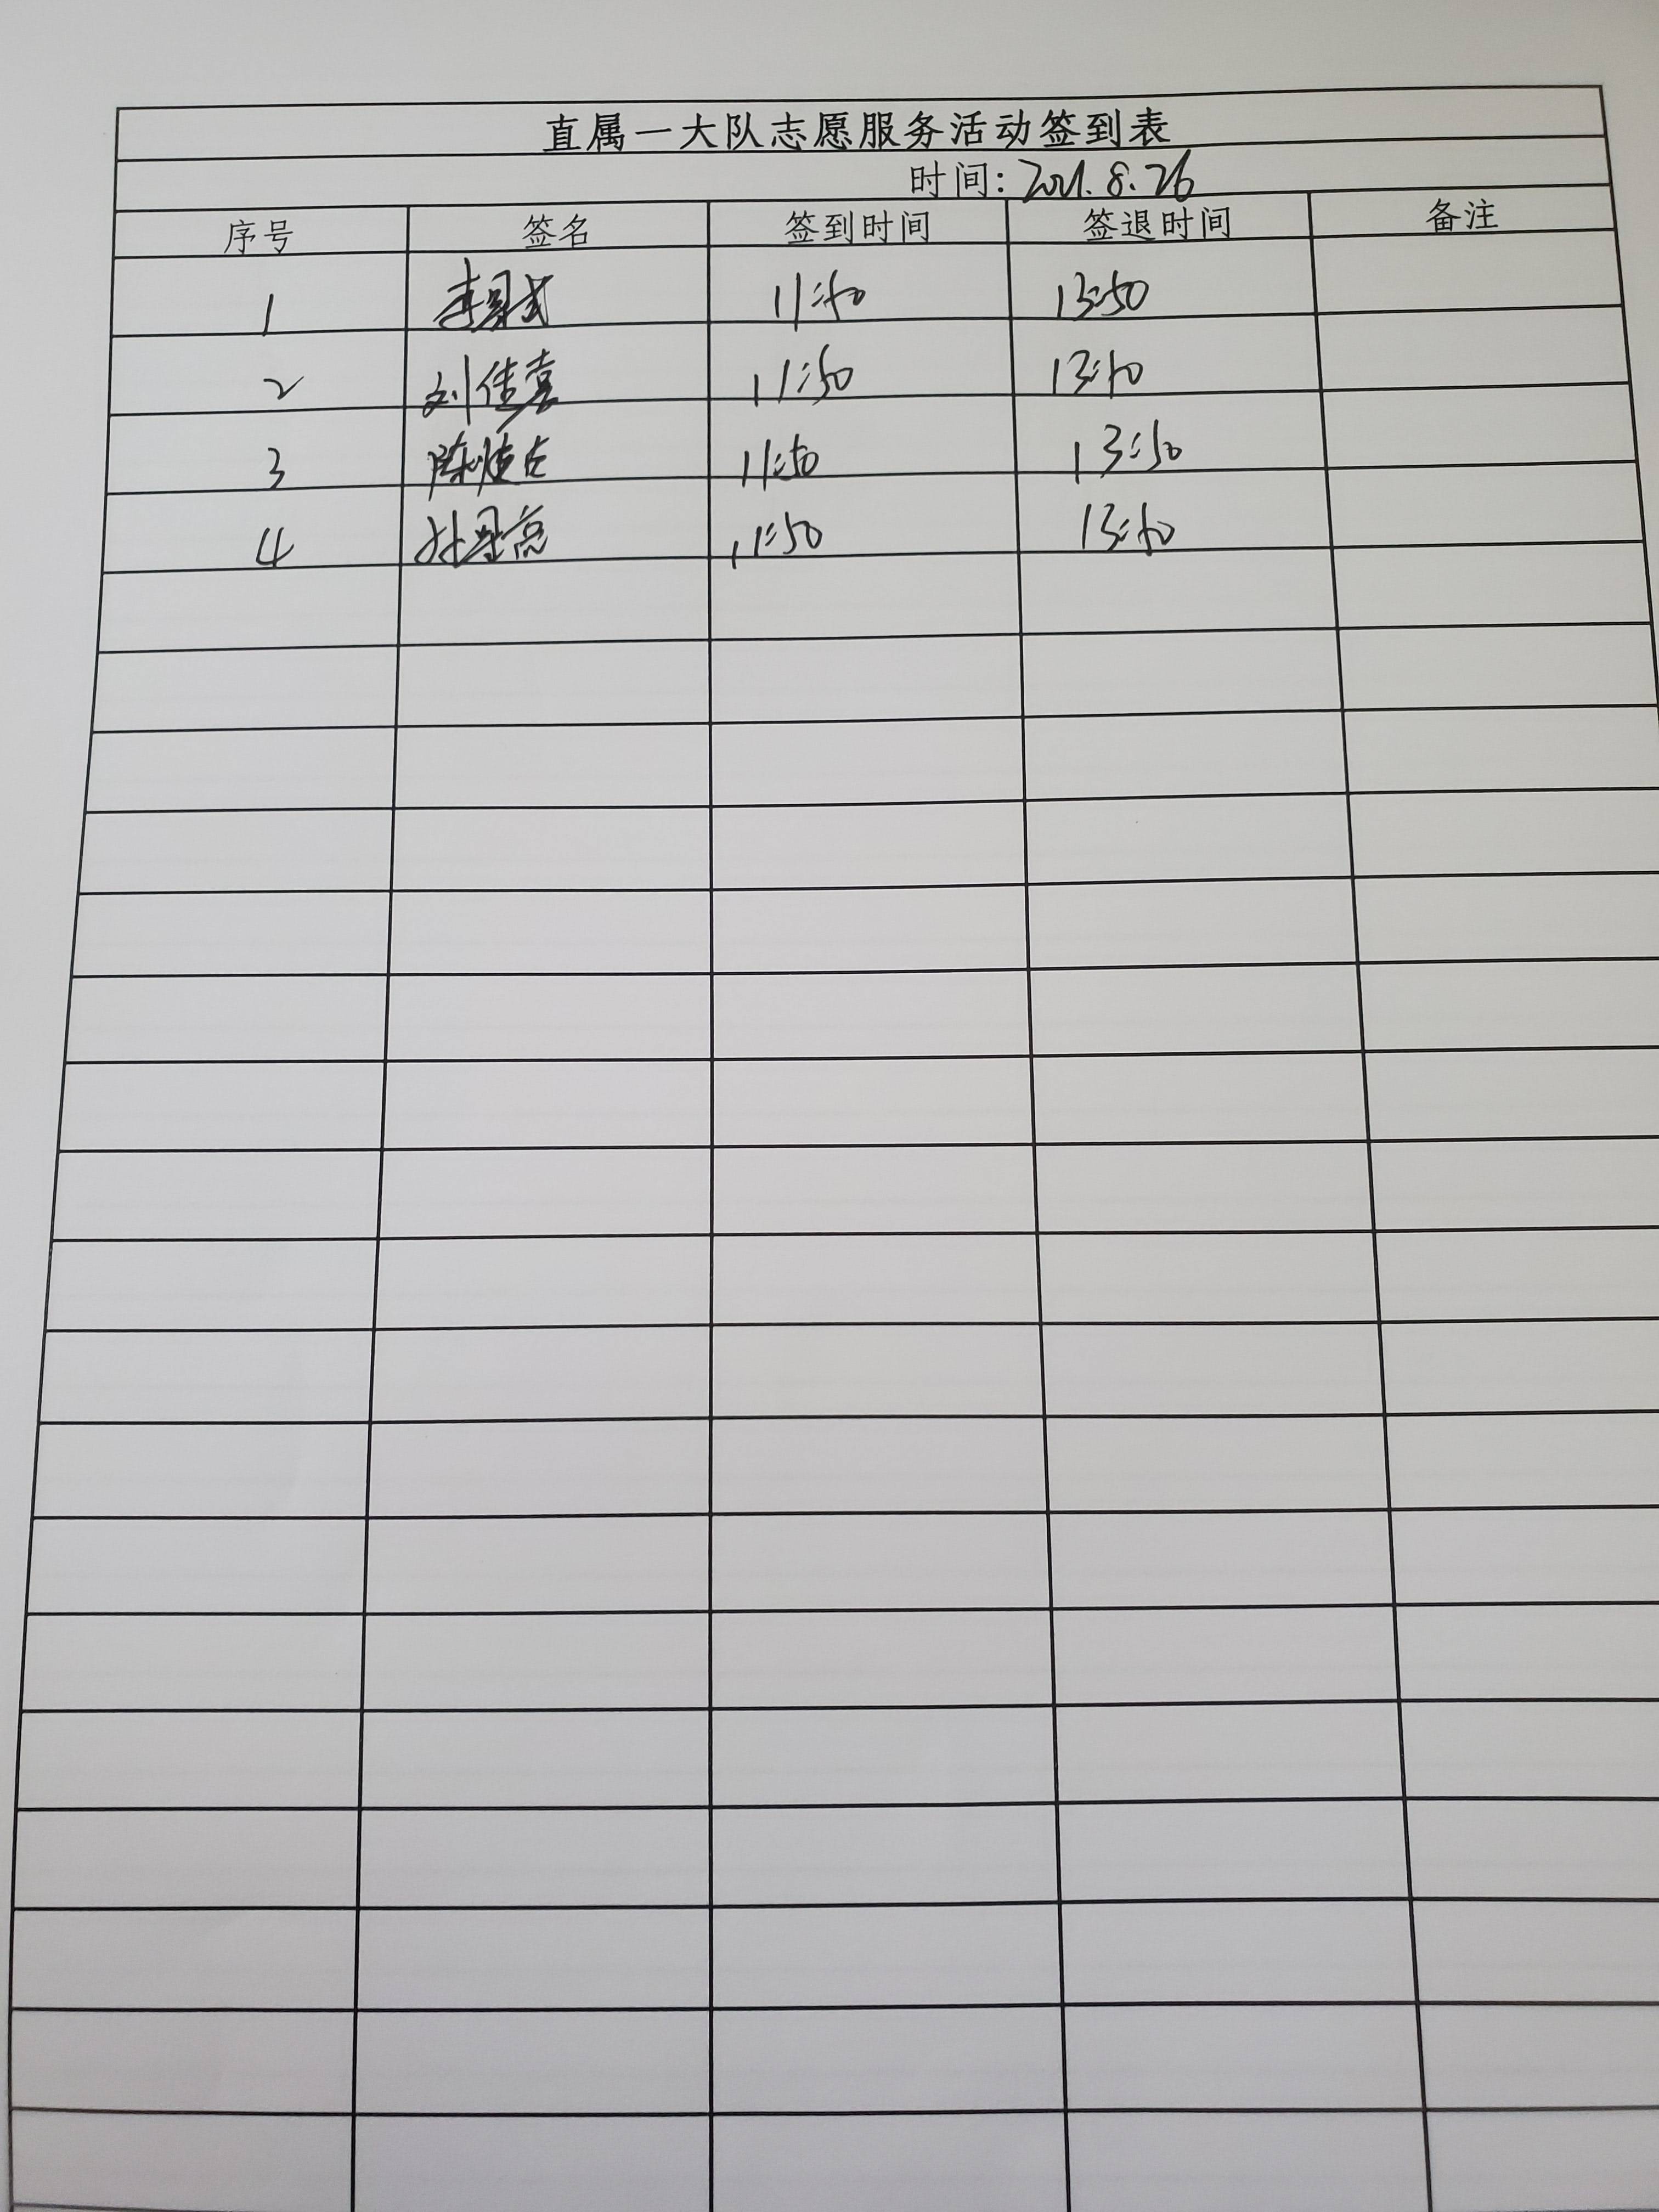 直属一大队志愿服务活动签到表
时间: 2021.8.26
序号 签名 签到时间 签退时间 备注
1 11:50 13:50
2 刘佳喜 11:50 13:50
3 陈 11:50 13:50
4 11:50 13:50